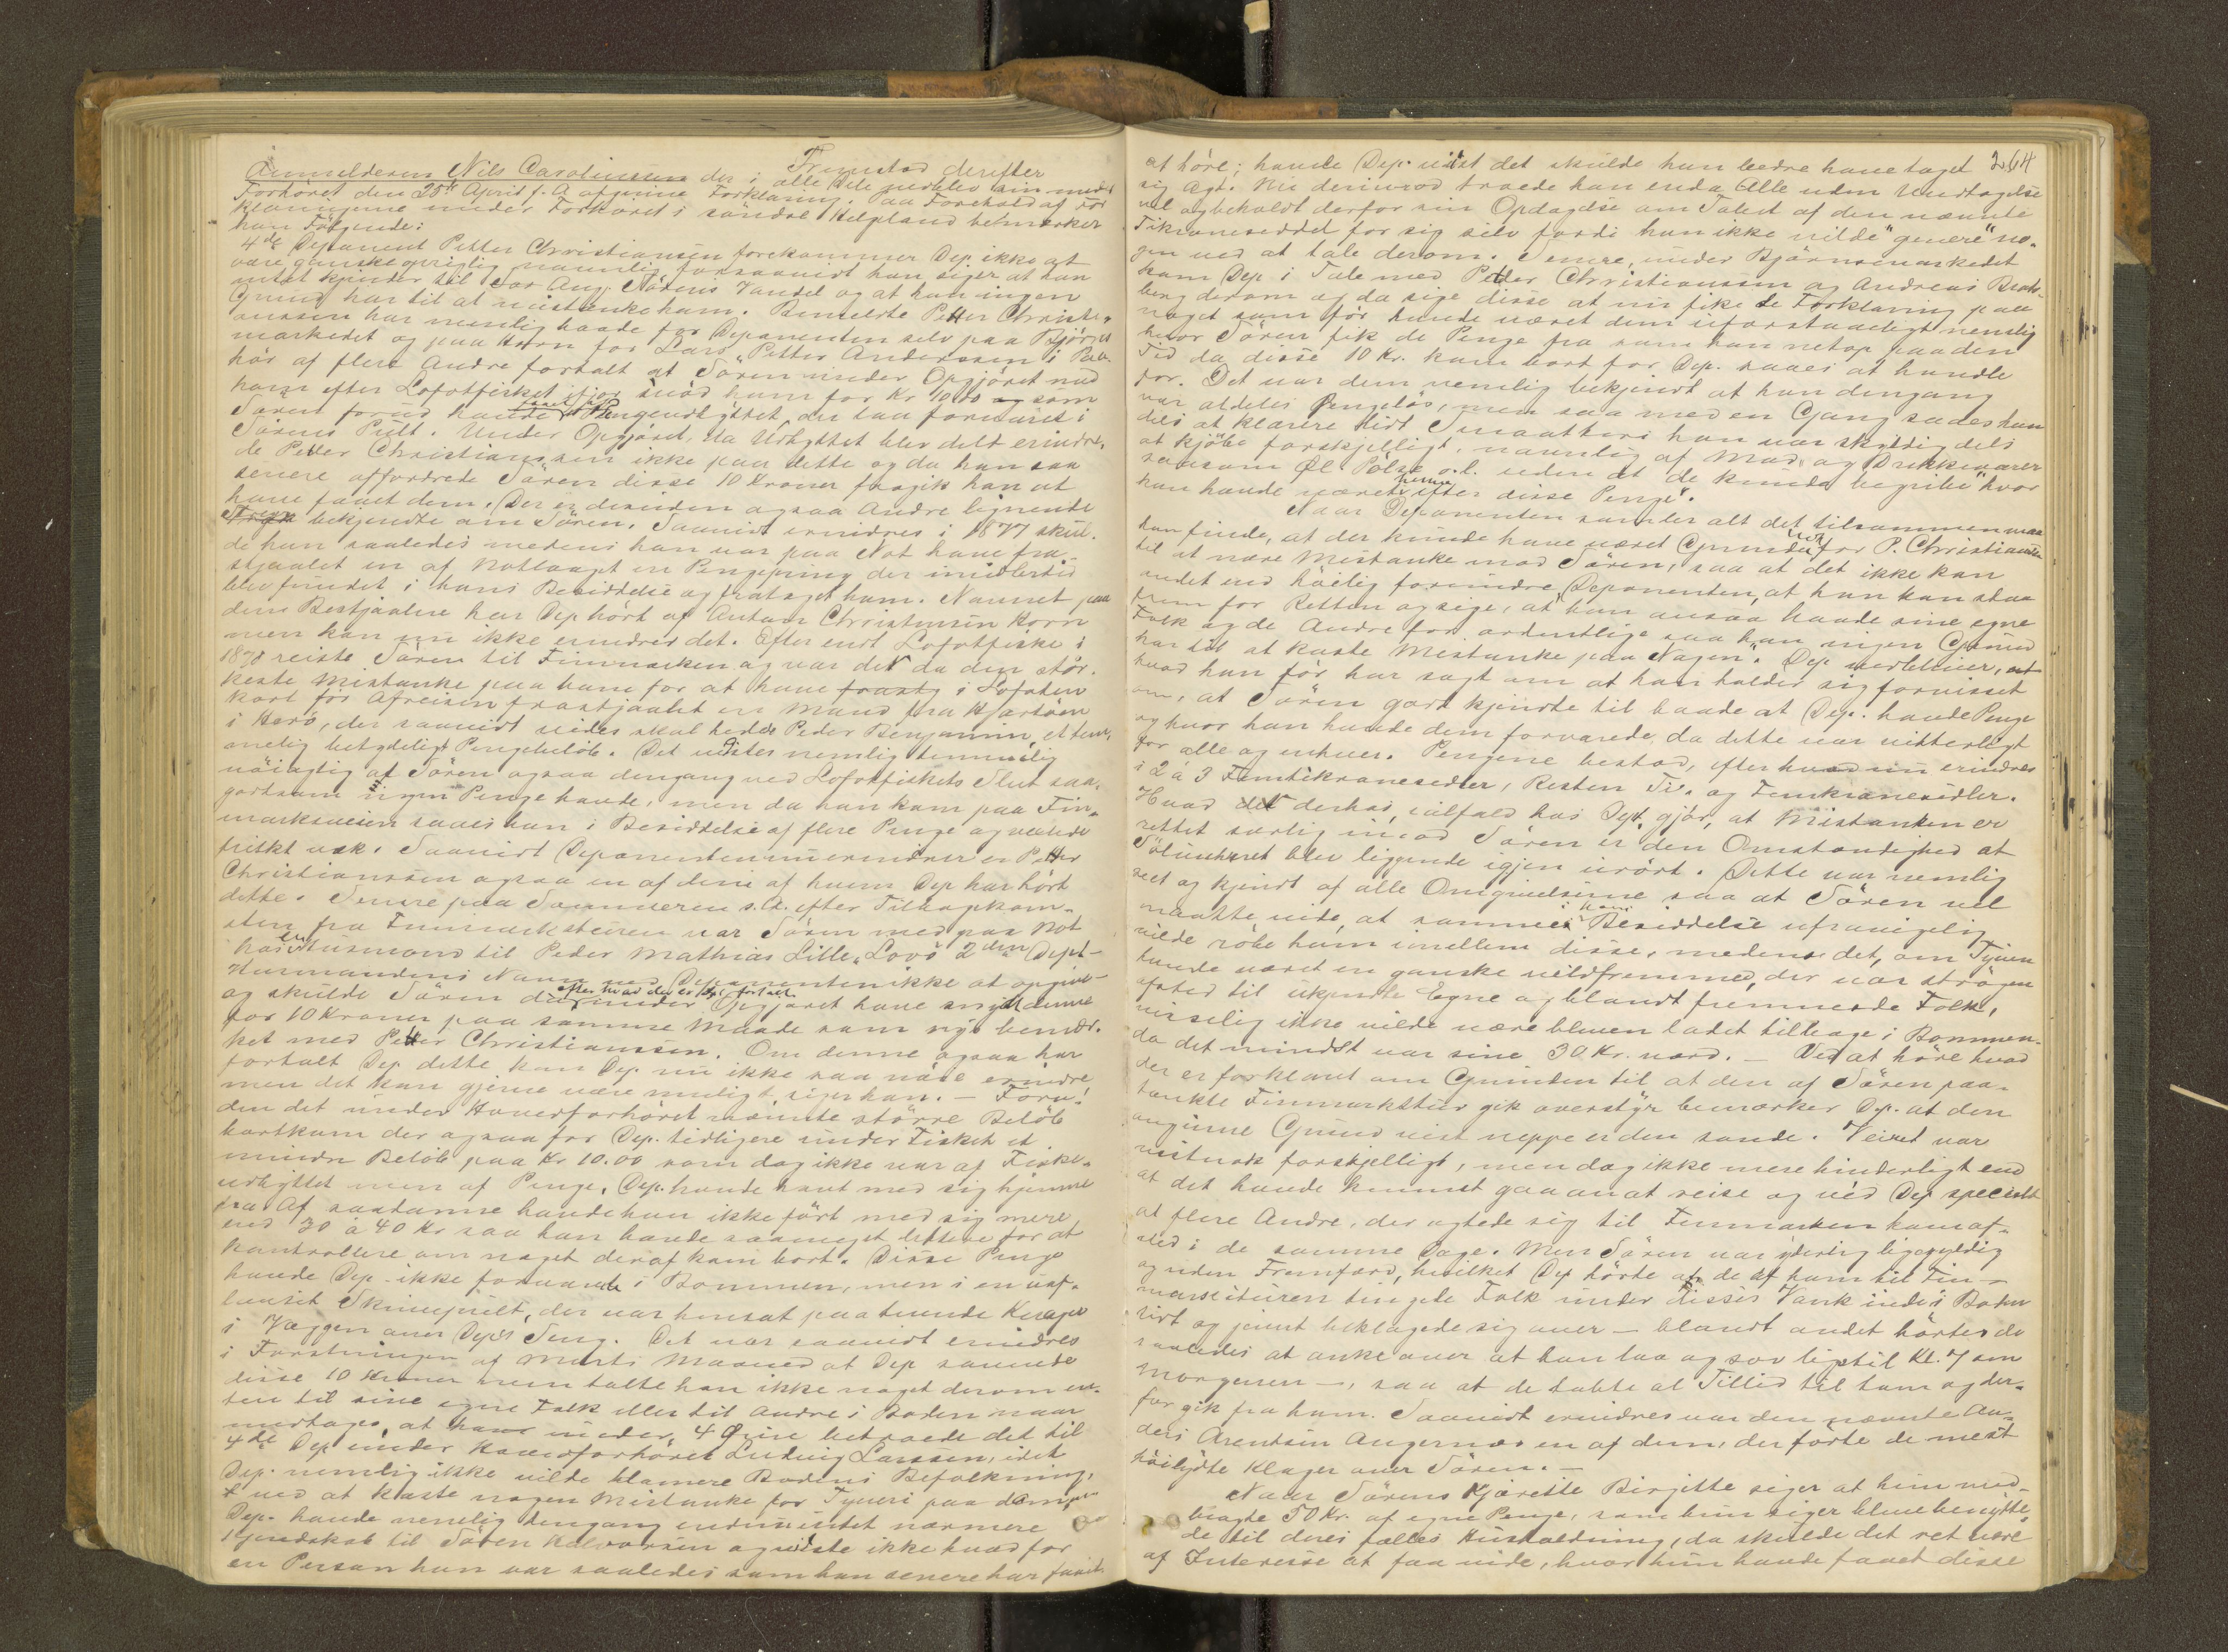 Fremstod derefter
Anmelderen Nils Carolinssen der i alle Dele vedblev sin ved
Forhøret den 25de April f. A afgivne Forklaring. Paa Forehold af For
klaringerne under Forhøret i søndre Helgeland bemærker
han Følgende:
4de Deponent Petter Christiansen forekommer Dep. ikke at
være ganske oprigtig navnlig forsaavidt han siger at han
intet kjender til for Ang. Sørens Vandel og at han ingen
Grund har til at mistænke ham. Bemeldte Petter Christi-
anssen har nemlig baade for Deponenten selv paa Bjørns
markedet og paa Horn for Lars Petter Anderssen i
hør af flere Andre fortalt at Søren under Opgjøret med
ham efter Lofotfisket ifjor snød ham for Kr 10.00 som
Søren forud havde faaet af Pengeudbyttet, der laa forvaret i
Sørens Pult. Under Opgjøret, da Udbyttet blev delt erindre-
de Petter Christianssen ikke paa dette og da han saa
senere affordrede Søren disse 10 Kroner fragik han at
have faaet dem. Der er desuden ogsaa Andre lignende
Træk bekjendte om Søren. Saavidt erindres i 1877 skul-
de han saaledes medens han var paa Not have fra-
stjaalet en af Notlauget en Pengepung der imidlertid
blev fundet i hans Besiddelse og frataget ham. Navnet paa
den Bestjaalne har Dep hørt af Antam Christensen Horn
men kan nu ikke erindres det. Efter endt Lofotfiske i
1878 reiste Søren til Finmarken og var det da den stør-
keste Mistanke paa ham for at have i Lofoten
kort før Afreisen frastjaalet en Mand fra Hjartøen
i Herø, der saavidt vides skal hedde Peder Benjamin, et tem-
melig betydeligt Pengebeløb. Det vidstes nemlig temmelig
nøiagtig at Søren ogsaa dengang ved Lofotfiskets Slut saa-
godtsom ingen Penge havde, men da han kom paa Fin-
markveien saaes han i Besiddelse af flere Penge og
friskt væk. Saavidt Deponenten nu erindrer er Petter
Christianssen ogsaa en af dem af hvem Dep har hørt
dette. Senere paa Sommeren s. A. efter Tilbagekom-
sten fra Finmarksturen var Søren med paa Not
hos en Husmand til Peder Mathias Lille-Lovø 2den Dept-
Husmandens Navn ved Deponenten ikke at opgive-
og skulde Søren da efter hvad der er Dep. fortalt under Opgjøret have snydt denne
for 10 Kroner paa samme Maade som nys bemær-
ket med Petter Christianssen. Om denne ogsaa har
fortalt Dep dette kan Dep. nu ikke saa nøie erindre,
men det kan gjerne være muligt, siger han. - Foru-
den det under Hovedforhøret nævnte større Beløb
bortkom der ogsaa for Dep. tidligere under Fisket et
mindre Beløb paa Kr 10.00 som dog ikke var af Fiske-
udbyttet men af Penge, Dep. havde havt med sig hjemme
fra. Af saadanne havde han ikke ført med sig mere
end 30 à 40 Kr saa han havde saameget lettere for at
kontrollere om noget deraf kom bort. Disse Penge
havde Dep. ikke forvarede i Bommen, men i en uaf-
laaset Skrinepult, der var hensat paa tvende Knaper
i Væggen over Dep's Seng. Det var saavidt erindres
i Forstningen af Marts Maaned at Dep savnede
disse 10 Kroner men talte han ikke noget derom en-
ten til sine egne Folk eller til Andre i Boden naar
undtages, at han under 4 Øine betroede det til
4de Dep under Hovedforhøret Ludvig Larssen, idet
Dep. nemlig ikke vilde blamere Bodens Befolkning,
ved at kaste nogen Mistanke for Tyveri paa dem
Dep. havde nemlig dengang endnu intet nærmere
Kjendskab til Søren Halvorsen og vidste ikke hvad for
en Person han var saaledes som han senere har faaet
264
at høre; havde Dep. vidst det skulde han bedre have taget
sig Agt. Nu derimod troede han enda Alle uden Undtagelse
vel og beholdt derfor sin Opdagelse om Tabet af den nævnte
Tikroneseddel for sig selv fordi han ikke vilde "genere" no-
gen ved at tale derom. Senere, under Bjørnsmarkedet
kom Dep. i Tale med Petter Christianssen og Andreas Brat-
berg derom og da sige disse at nu fik de Forklaring paa
noget som før havde været dem uforstaaeligt nemlig
hvor Søren fik de Penge fra som han netop paa den
Tid da disse 10 Kr. kom bort for Dep. saaes at handle
for. Det var dem nemlig bekjendt at han dengang
var aldeles pengeløs, men saa med en Gang saaes han
dels at klarere lidt Smaatteri han var skyldig dels
at kjøbe forskjelligt, navnlig af Mad og Drikkevarer
saasom Øl Pølse o. l. uden at de kunde begribe "hvor
han havde været henne efter disse Penge".
Naar Deponenten samler alt det tilsammen maa
han finde, at der kunde have været Grund nok for P. Christiansen
til at nære Mistanke mod Søren, saa at det ikke kan
andet end høilig forundre Deponenten, at han kan staa
frem for Retten og sige, at "han ansaa baade sine egne
Folk og de Andre for ordentlige saa han ingen Grund
har til at kaste Mistanke paa Nogen". Dep. vedbliver, at
hvad han før har sagt om at han holder sig forvisset
om, at Søren godt kjendte til baade at Dep. havde Penge
og hvor han havde dem forvarede, da dette var vitterligt
for alle og enhver. Pengene bestod, efter hvad nu erindres
i 2 à 3 Femtikronesedler, Resten Ti- og Femkronesedler.
Hvad det derhos, ialfald hos Dept. gjør, at Mistanken er
rettet særlig imod Søren er den Omstændighed at
Søluhret blev liggende igjen urørt. Dette var nemlig
seet og kjendt af alle Omgivelserne saa at Søren vel
maatte vide, at sammes i hans Besiddelse ufravigelig
vilde røbe ham imellem disse, medens det, om Tyven
havde været en ganske vildfremmed, der var strøgen
afsted til ukjendte Egne og blandt fremmede Folk,
visselig ikke vilde være bleven ladet tilbage i Bommen-
da det mindst var sine 30 Kr. værd. - Ved at høre hvad
der er forklaret om Grunden til at den af Søren paa-
tænkte Finmarkstur gik overstyr bemærker Dep. at den
angivne Grund vist neppe er den sande. Veiret var
vistnok forskjelligt, men dog ikke mere hinderligt end
at det havde kunnet gaa an at reise og véd Dep specielt
at flere Andre, der agtede sig til Finmarken kom af-
sted i de samme Dage. Men Søren var yderlig ligegyldig
og uden Fremfærd, hvilket Dep hørte at de af ham til Fin-
markturen tingede Folk under disses Vank inde i Boden
tidt og jevnt beklagede sig over - blandt andet hørtes de
saaledes at anke over at han laa og sov ligetil Kl. 7 om
Morgenen -, saa at de tabte al Tillid til ham og der-
for gik fra ham. Saavidt erindres var den nævnte An-
ders Arentsen Angernæs en af dem, der førte de mest
høilydte Klager over Søren. -
Naar Sørens Kjæreste Birgitte siger at hun med-
bragte 50 Kr. af egne Penge, som hun siger bleve benytte-
de til deres fælles Husholdning, da skulde det ret være
af Interesse at faa vide, hvor hun havde faaet disse